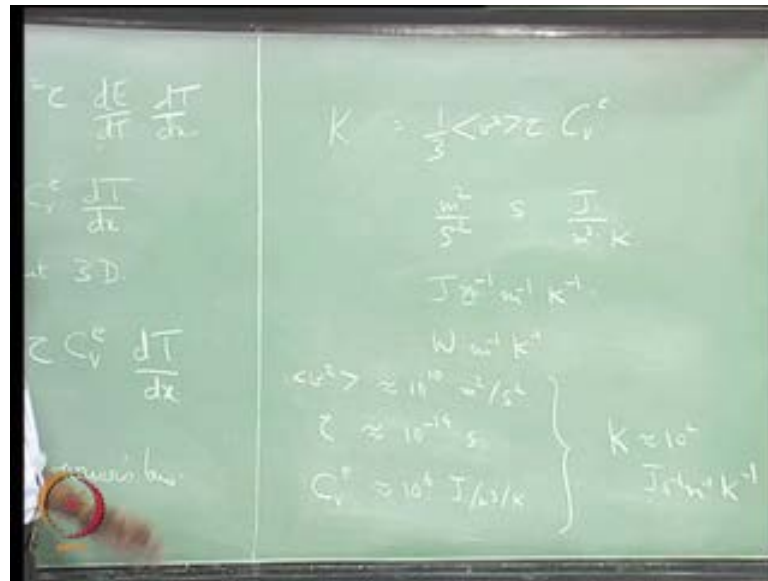 ² τ dE/dT dT/dx
C_v^e dT/dx
3D.
τ C_v^e dT/dx
K = 1/3 <v²> τ C_v^e
m²/s² s J/m³·K
J s⁻¹ m⁻¹ K⁻¹
W m⁻¹ K⁻¹
<v²> ≈ 10¹⁰ m²/s²
τ ≈ 10⁻¹⁴ s
C_v^e ≈ 10⁶ J/m³/K
K ≈ 10²
J s⁻¹ m⁻¹ K⁻¹